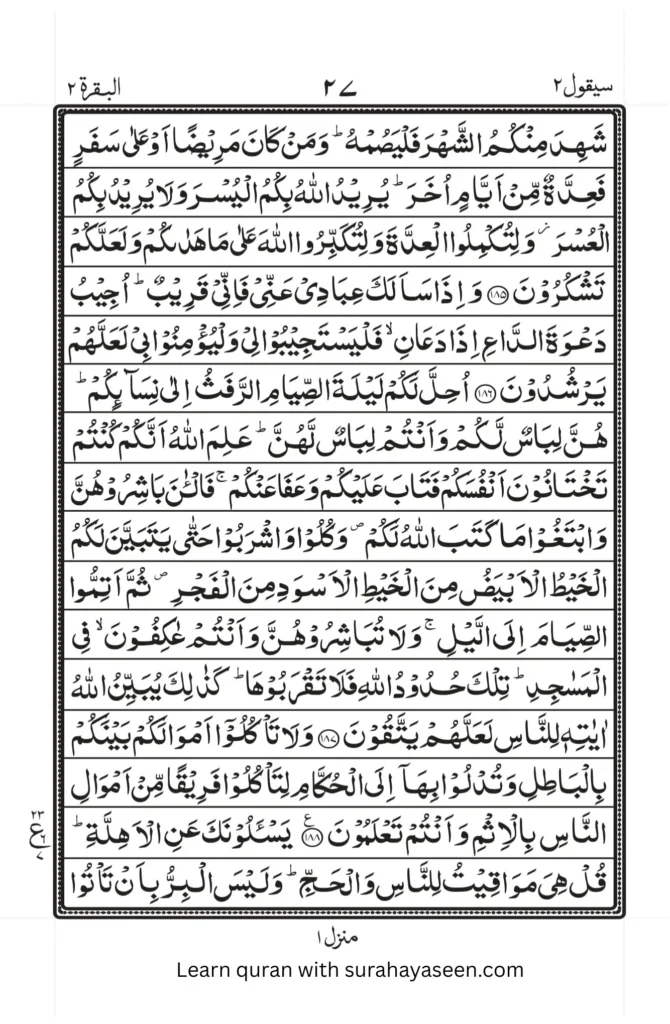 سيقول ٢ ٢٧ البقرة ٢
شَهِدَ مِنْكُمُ الشَّهْرَ فَلْيَصُمْهُ ؕ وَمَنْ كَانَ مَرِيْضًا اَوْ عَلٰى سَفَرٍ
فَعِدَّةٌ مِّنْ اَيَّامٍ اُخَرَ ؕ يُرِيْدُ اللّٰهُ بِكُمُ الْيُسْرَ وَلَا يُرِيْدُ بِكُمُ
الْعُسْرَ ؗ وَلِتُكْمِلُوا الْعِدَّةَ وَلِتُكَبِّرُوا اللّٰهَ عَلٰى مَا هَدٰىكُمْ وَلَعَلَّكُمْ
تَشْكُرُوْنَ ﴿۱۸۵﴾ وَاِذَا سَاَلَكَ عِبَادِيْ عَنِّيْ فَاِنِّيْ قَرِيْبٌ ؕ اُجِيْبُ
دَعْوَةَ الدَّاعِ اِذَا دَعَانِ ۙ فَلْيَسْتَجِيْبُوْا لِيْ وَلْيُؤْمِنُوْا بِيْ لَعَلَّهُمْ
يَرْشُدُوْنَ ﴿۱۸۶﴾ اُحِلَّ لَكُمْ لَيْلَةَ الصِّيَامِ الرَّفَثُ اِلٰى نِسَآئِكُمْ ؕ
هُنَّ لِبَاسٌ لَّكُمْ وَاَنْتُمْ لِبَاسٌ لَّهُنَّ ؕ عَلِمَ اللّٰهُ اَنَّكُمْ كُنْتُمْ
تَخْتَانُوْنَ اَنْفُسَكُمْ فَتَابَ عَلَيْكُمْ وَعَفَا عَنْكُمْ ۚ فَالْـٰٔنَ بَاشِرُوْهُنَّ
وَابْتَغُوْا مَا كَتَبَ اللّٰهُ لَكُمْ ۪ وَكُلُوْا وَاشْرَبُوْا حَتّٰى يَتَبَيَّنَ لَكُمُ
الْخَيْطُ الْاَبْيَضُ مِنَ الْخَيْطِ الْاَسْوَدِ مِنَ الْفَجْرِ ۪ ثُمَّ اَتِمُّوا
الصِّيَامَ اِلَى الَّيْلِ ۚ وَلَا تُبَاشِرُوْهُنَّ وَاَنْتُمْ عٰكِفُوْنَ ۙ فِي
الْمَسٰجِدِ ؕ تِلْكَ حُدُوْدُ اللّٰهِ فَلَا تَقْرَبُوْهَا ؕ كَذٰلِكَ يُبَيِّنُ اللّٰهُ
اٰيٰتِهٖ لِلنَّاسِ لَعَلَّهُمْ يَتَّقُوْنَ ﴿۱۸۷﴾ وَلَا تَاْكُلُوْٓا اَمْوَالَكُمْ بَيْنَكُمْ
بِالْبَاطِلِ وَتُدْلُوْا بِهَآ اِلَى الْحُكَّامِ لِتَاْكُلُوْا فَرِيْقًا مِّنْ اَمْوَالِ
النَّاسِ بِالْاِثْمِ وَاَنْتُمْ تَعْلَمُوْنَ ﴿۱۸۸﴾ ع يَسْـَٔلُوْنَكَ عَنِ الْاَهِلَّةِ ؕ
قُلْ هِيَ مَوَاقِيْتُ لِلنَّاسِ وَالْحَجِّ ؕ وَلَيْسَ الْبِرُّ بِاَنْ تَاْتُوا
٢٣
ع
٧
منزل ١
Learn quran with surahayaseen.com